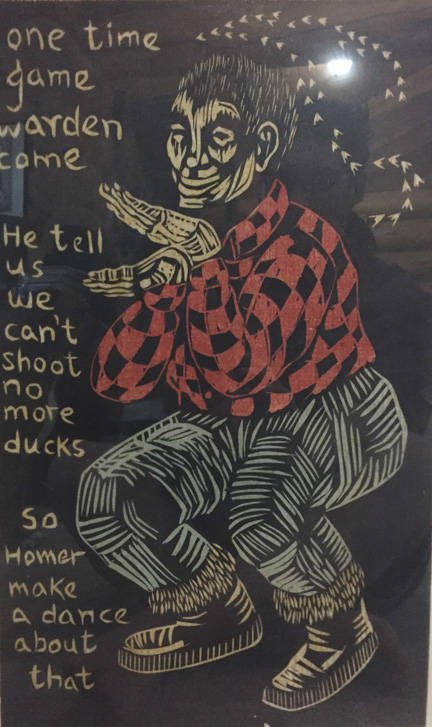 one time
game
warden
come
He tell
us
we
can't
shoot
no
more
ducks
So
Homer
make
a dance
about
that